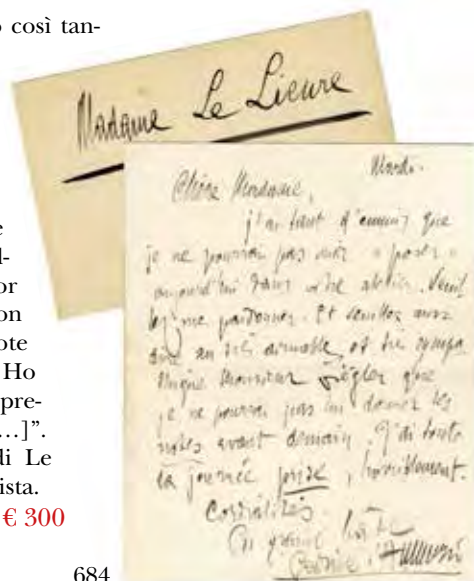 così tan-
e
l-
or
on
ote
Ho
pre-
…]".
di Le
ista.
€ 300
684
Madame Le Lieure
Mardi.
Chère Madame,
j'ai tant d'ennuis que
je ne pourrai pas venir « poser »
aujourd'hui dans votre atelier. Veuil
lez me pardonner. Et veuillez aussi
dire au très aimable et très sympa
thique Monsieur Ziègler que
je ne pourrai pas lui donner les
notes avant demain. J'ai toute
la journée prise, horriblement.
Cordialités.
En grande hâte